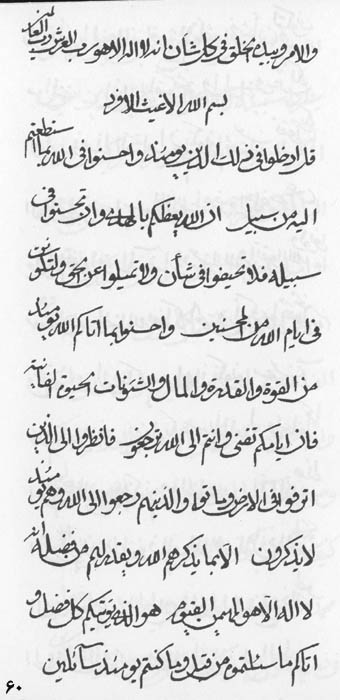 والامر وبيده الخلق في كل شأن انه لا اله الا هو رب العرش رب العالمين
بسم الله الاغيث الاود
قل ادخلوا في ذلك الدين يومئذ واحسنوا في الله بما ستطعتم
اليه من سبيل ان الله يعظكم بالهدى وان تحسنوا في
سبيله فلا تحيفوا في شأن ولا تميلوا عن الحق ولتكونن
في ايام الله من المحسنين واحسنوا بما اتاكم الله يومئذ
من القوة والقدرة والمال والشئونات الحيوة لفانية
فان ايامكم تقضى وانتم الى الله ترجعون فانظروا الى الذين
اترفوا في الارض وماتوا والذينهم رجعوا الى الله وهم يومئذ
لا يذكرون الا بما يذكرهم الله ويقدر لهم من فضله انه
لا اله الا هو المهيمن القيوم هو الذي يؤتيكم كل فضل و
اتاكم ما سئلتموه من قبل وما كنتم يومئذ سائلين
۶۰